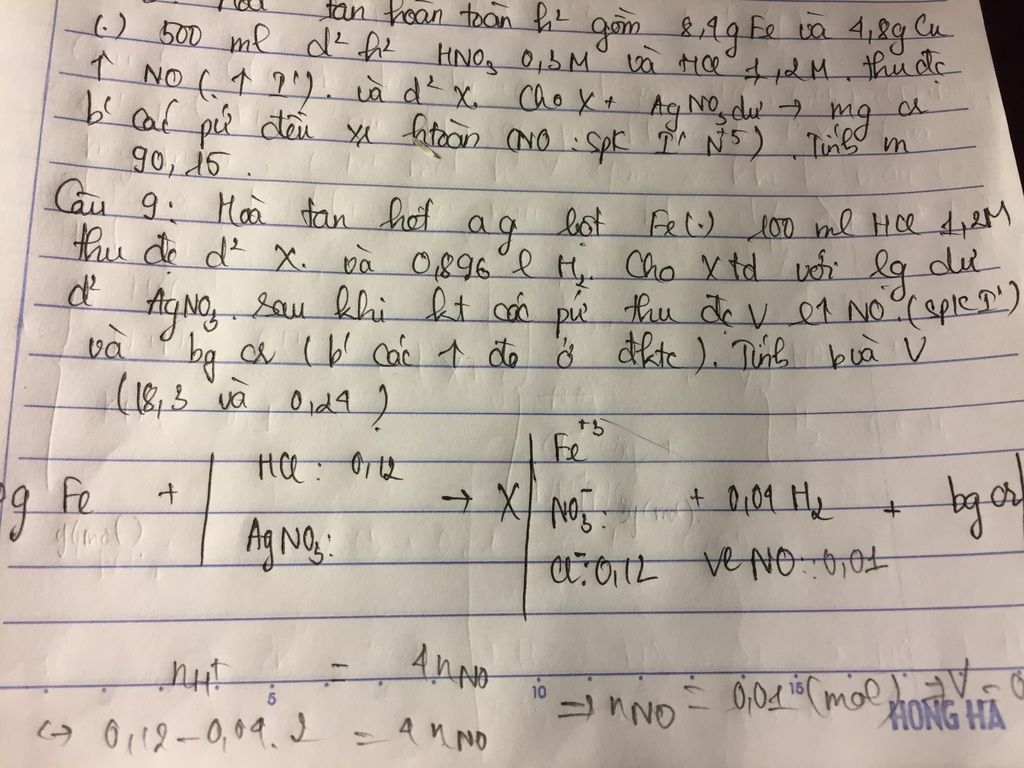 tan hoàn toàn h² gồm 8,4g Fe và 4,8g Cu
(.) 500 ml d² h² HNO₃ 0,3M và HCl 1,2M. thu đc
↑ NO (. ↑ I¹). và d² X. Cho X + AgNO₃ dư → mg ↓
b' các pứ đều xr htoàn (NO : spk I¹ N⁺⁵). Tính m
90,15.
Câu 9: Hoà tan hết a g bột Fe (.) 100 ml HCl 1,2M
thu đc d² X. và 0,896 l H₂. Cho X td với lg dư
d² AgNO₃. sau khi kt các pứ thu đc V l↑ NO. (spk I¹)
và bg cr (b' các ↑ đo ở đktc). Tính b và V
(18,3 và 0,24)
g Fe + HCl : 0,12 → X Fe⁺³
AgNO₃: NO₃⁻: + 0,04 H₂ + bg cr
Cl⁻: 0,12 Vl NO : 0,01
nH⁺ = 4nNO
↔ 0,12 - 0,04.2 = 4nNO ⇒ nNO = 0,01 (mol) → V = 0
5 10 15
HONG HA